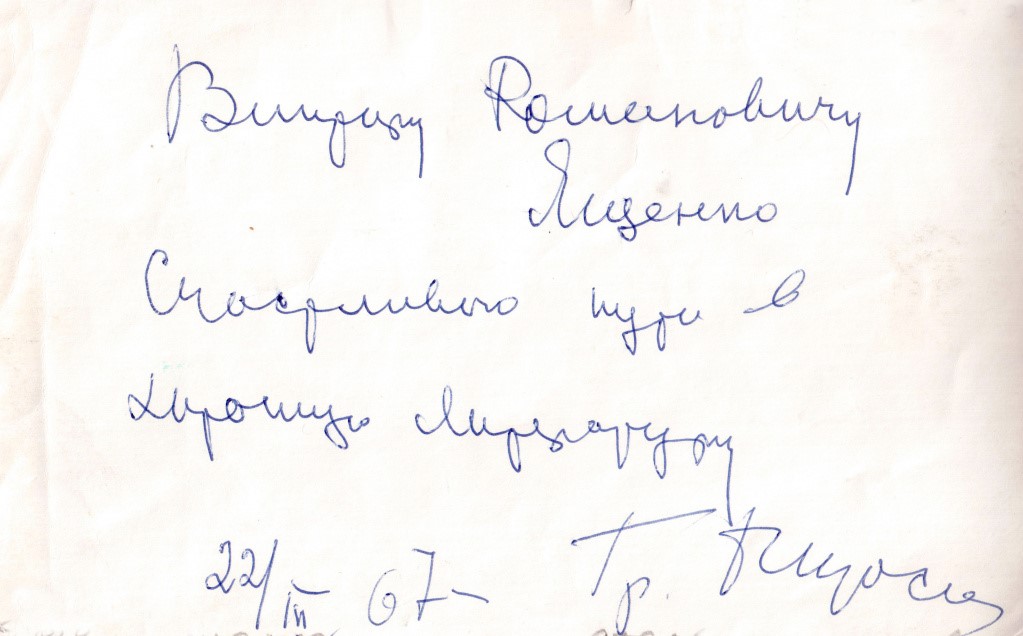 Виктору Романовичу
Ященко
Счастливого пути в
хорошую литературу
22/III 67
Гр.